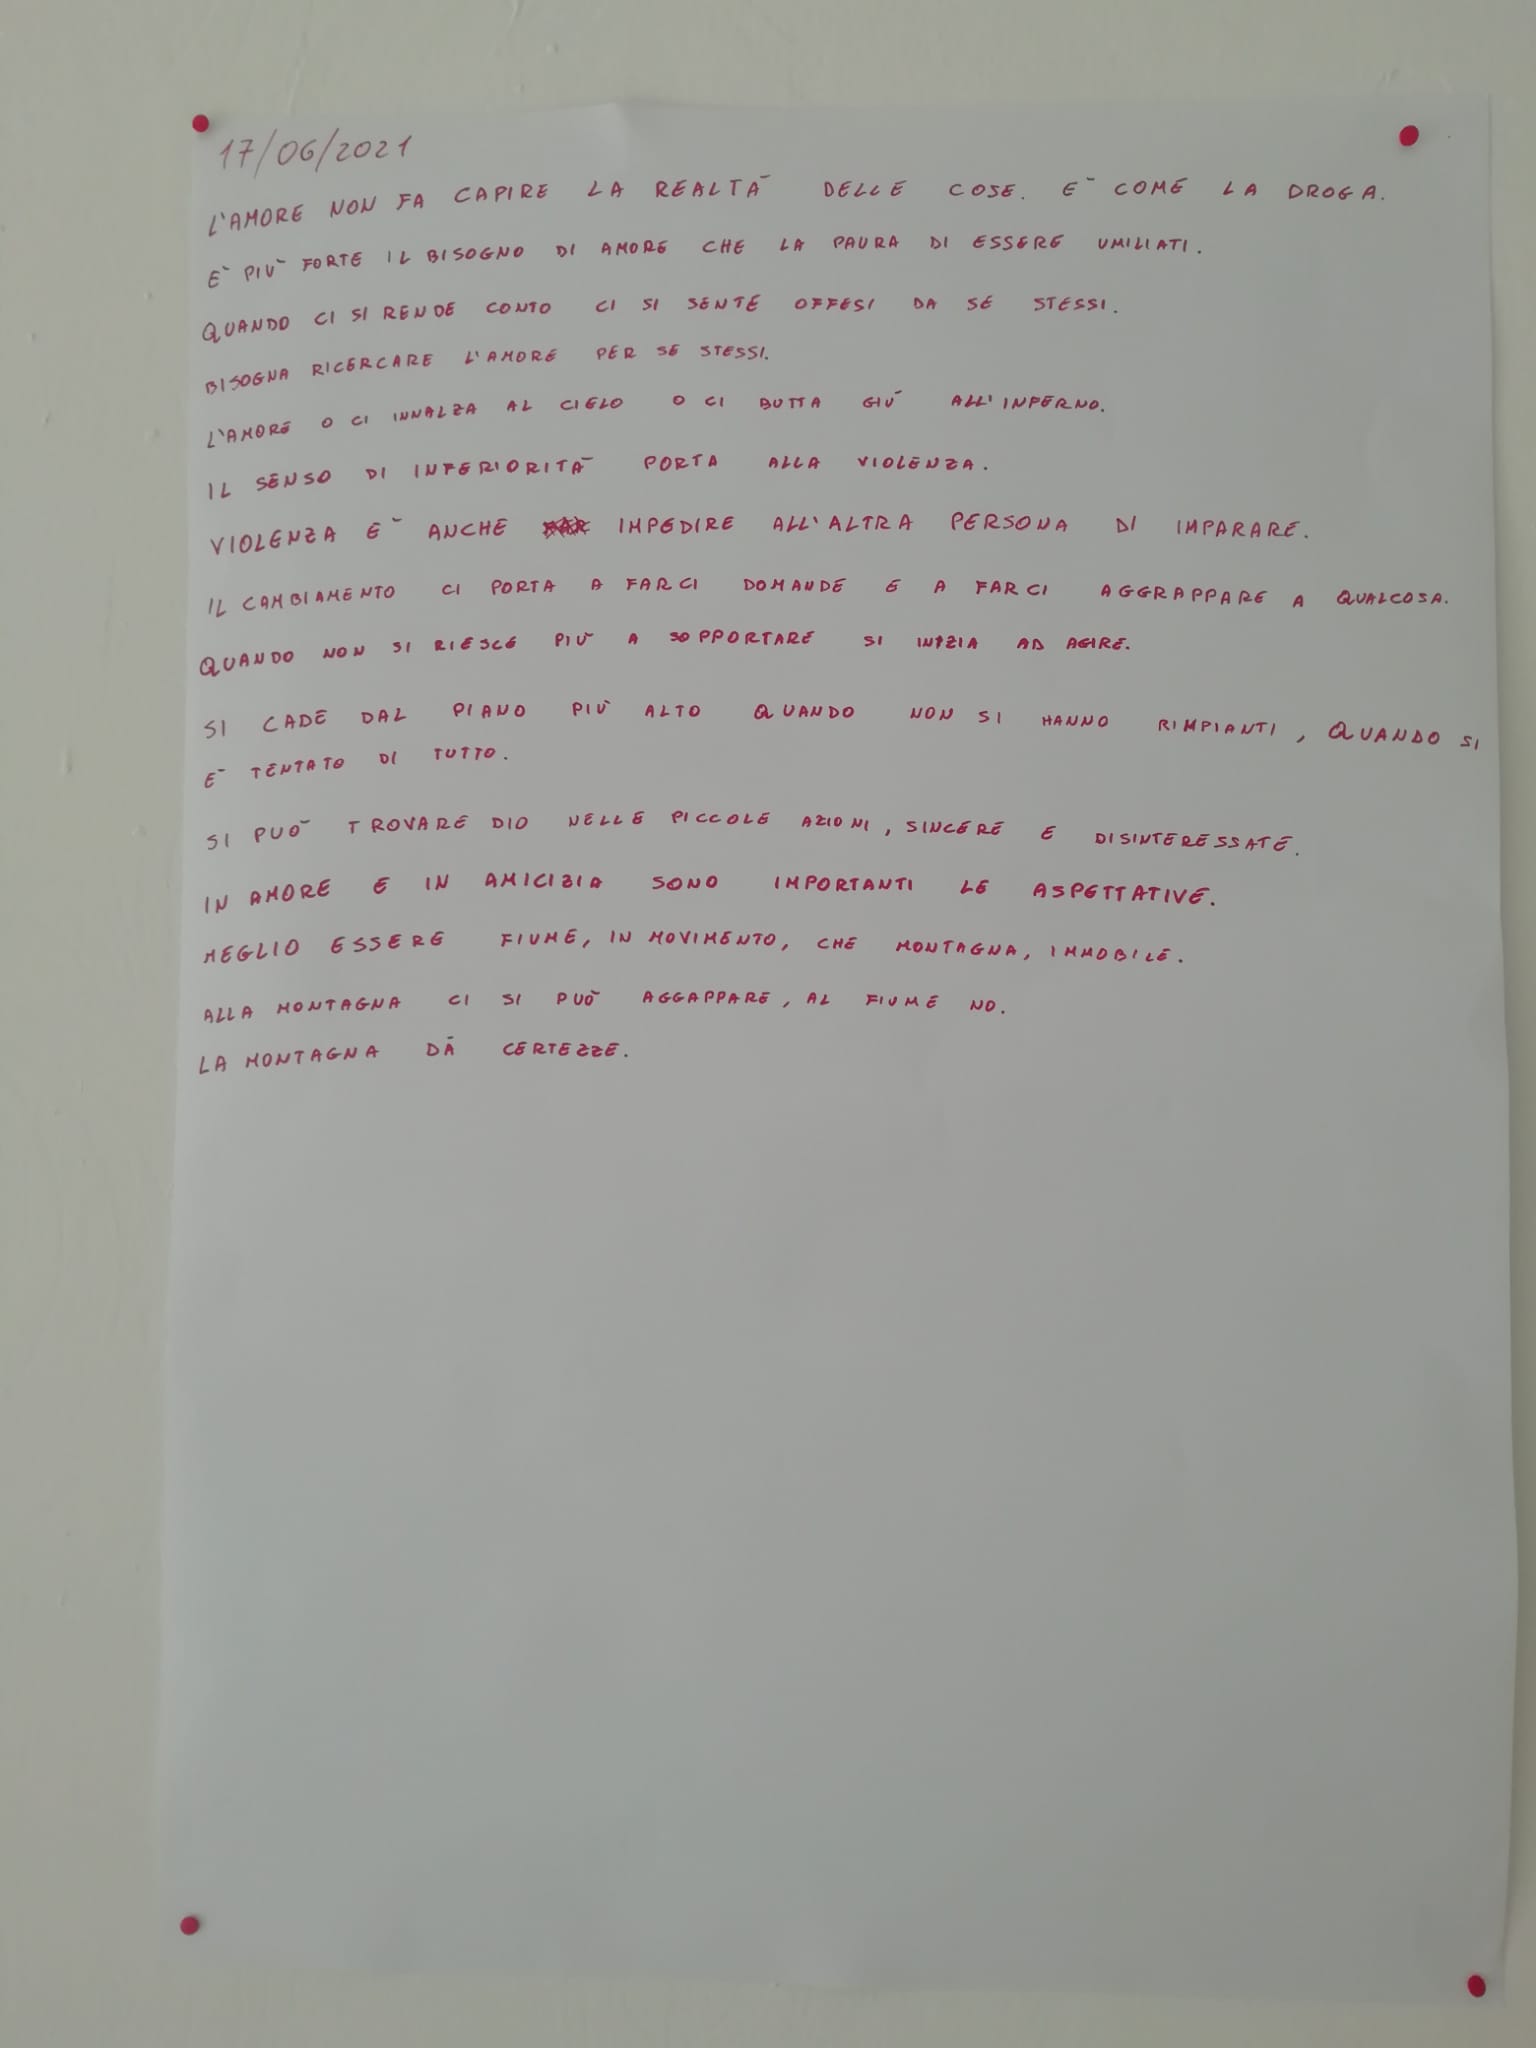 17/06/2021
L'AMORE NON FA CAPIRE LA REALTÀ DELLE COSE. È COME LA DROGA.
È PIÙ FORTE IL BISOGNO DI AMORE CHE LA PAURA DI ESSERE UMILIATI.
QUANDO CI SI RENDE CONTO CI SI SENTE OFFESI DA SE STESSI.
BISOGNA RICERCARE L'AMORE PER SE STESSI.
L'AMORE O CI INNALZA AL CIELO O CI BUTTA GIÙ ALL'INFERNO.
IL SENSO DI INFERIORITÀ PORTA ALLA VIOLENZA.
VIOLENZA È ANCHE IMPEDIRE ALL'ALTRA PERSONA DI IMPARARE.
IL CAMBIAMENTO CI PORTA A FARCI DOMANDE E A FARCI AGGRAPPARE A QUALCOSA.
QUANDO NON SI RIESCE PIÙ A SOPPORTARE SI INIZIA AD AGIRE.
SI CADE DAL PIANO PIÙ ALTO QUANDO NON SI HANNO RIMPIANTI, QUANDO SI
È TENTATO DI TUTTO.
SI PUÒ TROVARE DIO NELLE PICCOLE AZIONI, SINCERE E DISINTERESSATE.
IN AMORE E IN AMICIZIA SONO IMPORTANTI LE ASPETTATIVE.
MEGLIO ESSERE FIUME, IN MOVIMENTO, CHE MONTAGNA, IMMOBILE.
ALLA MONTAGNA CI SI PUÒ AGGAPPARE, AL FIUME NO.
LA MONTAGNA DÀ CERTEZZE.